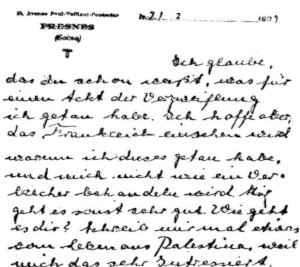 FRESNES
(Seine)
le 21/2 1939
Ich glaube,
das du schon weißt, was für
einen Ackt der Verzweiflung
ich getan habe. Ich hoffe aber,
das Frankreich einsehen wird
warum ich dieses getan habe,
und mich nicht wie ein Ver-
brecher behandeln wird. Mir
geht es sonst sehr gut. Wie geht
es dir? Schreib mir mal etwas
vom leben aus Palestina, weil
mich das sehr Interessiert.